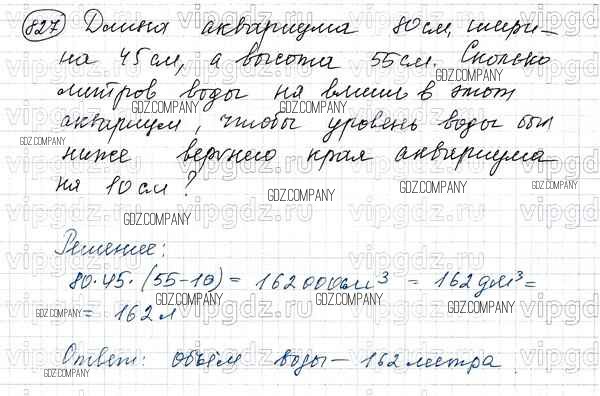 827 Длина аквариума 80 см, шири-
на 45 см, а высота 55 см. Сколько
литров воды на влить в этот
аквариум, чтобы уровень воды был
ниже верхнего края аквариума
на 10 см?
Решение:
80·45·(55-10) = 162000 см³ = 162 дм³ =
= 162 л
Ответ: объём воды – 162 литра.
GDZ.COMPANY
vipgdz.ru